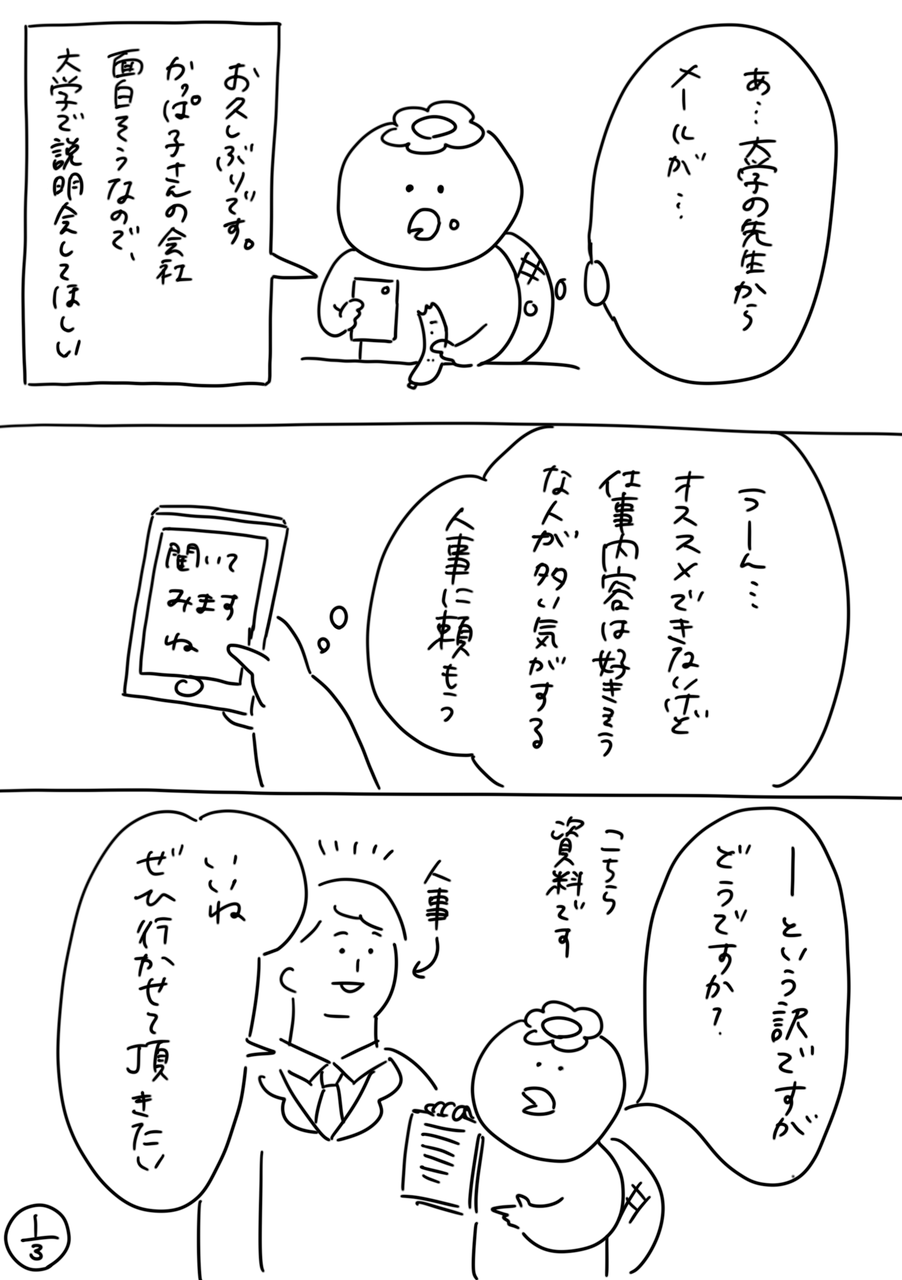 あ…大学の先生から
メールが…
お久しぶりです。
かっぱ子さんの会社
面白そうなので、
大学で説明会してほしい
うーん…
オススメできないけど
仕事内容は好きそう
な人が多い気がする
人事に頼もう
聞いて
みます
ね
ーという訳ですが
どうですか？
こちら
資料です
人事
いいね
ぜひ行かせて頂きたい
1/3